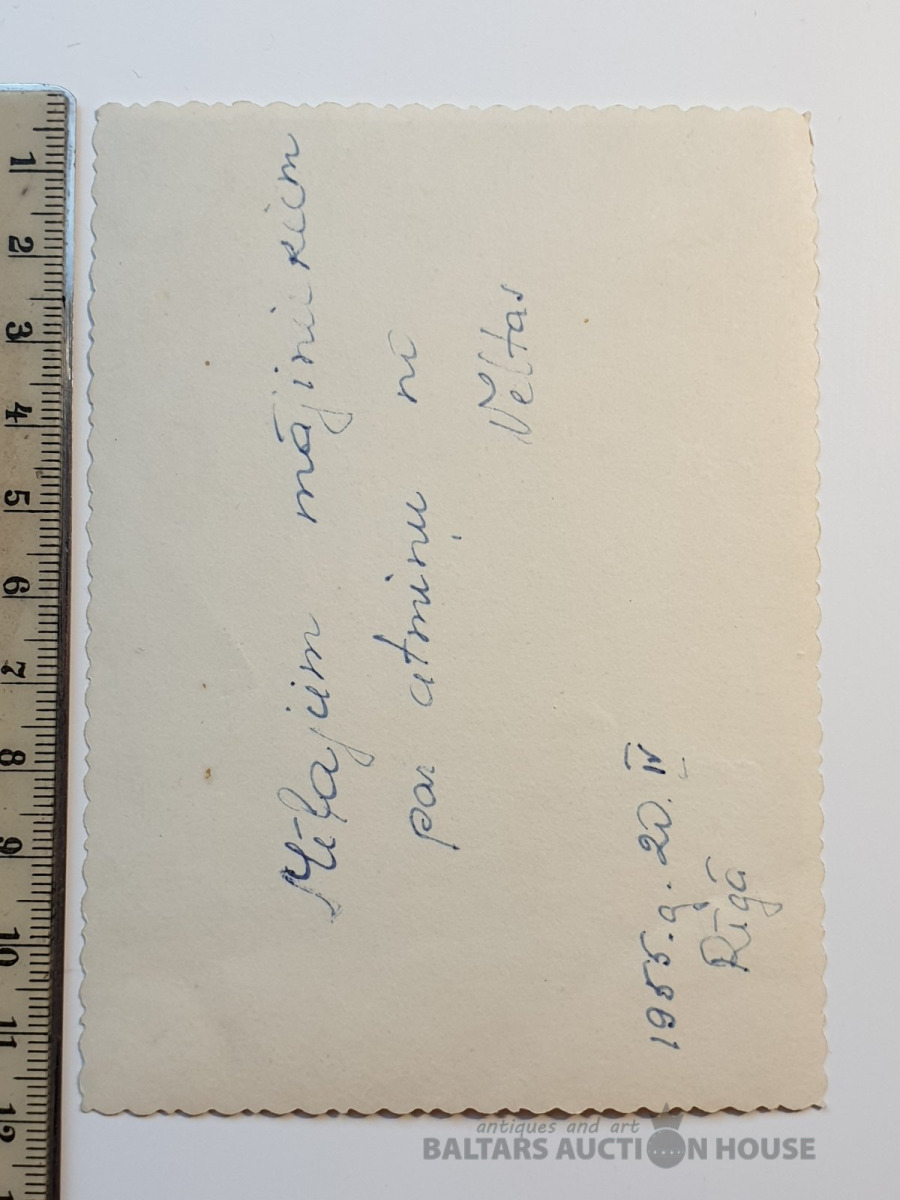 Mīļajiem mājiniekiem
par atmiņu nō
Veltas
1955.g. 20. IV
Rīgā
1
2
3
4
5
6
7
8
9
10
11
12
antiques and art
BALTARS AUCTION HOUSE